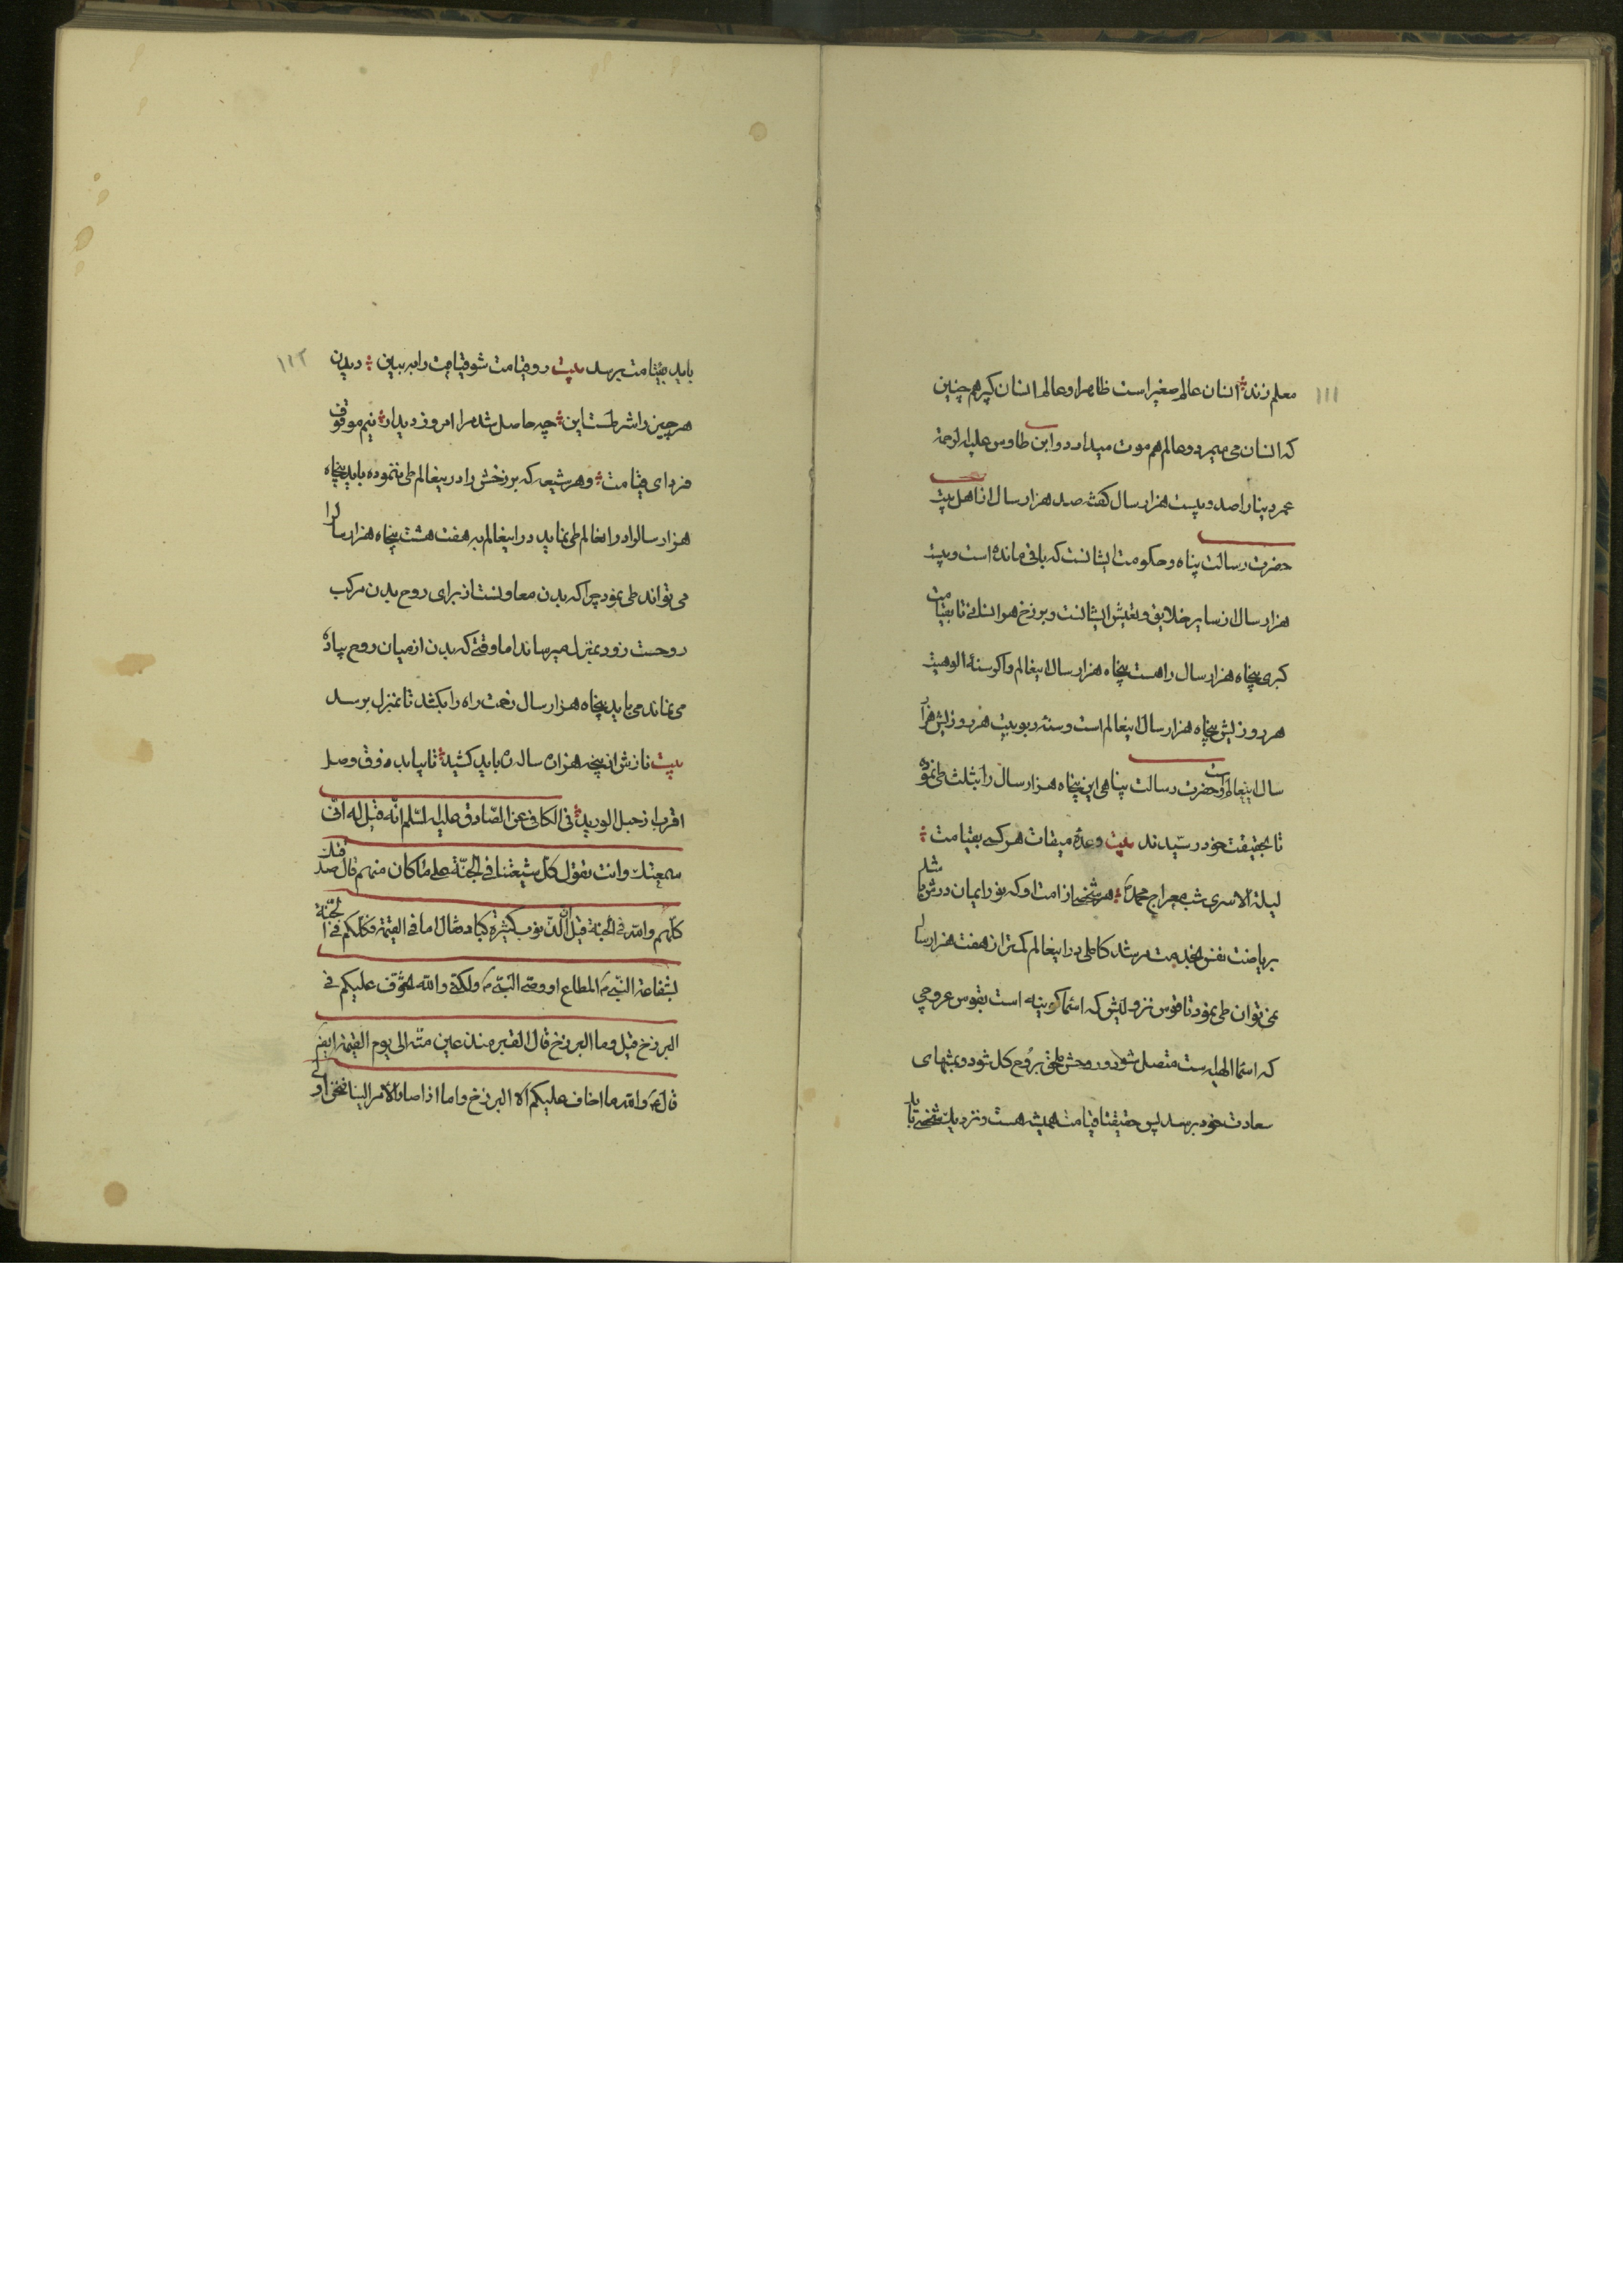 ۱۱۱
معلم زند انسان عالم صغیر است ظاهرا و عالم انسان کبیر هم چنین
که انسان می میرد و عالم هم موت میدارد و ابن طاوس علیه الرحمة
عمر دنیا را صد و بیست هزار سال گفته صد هزار سال از اهل بیت
حضرت رسالت پناه و حکومت ایشانست که باقی مانده است و بیست
هزار سال از سایر خلایق و تعیش ایشانست و برزخ هر انسانی تا بقیامت
کبری پنجاه هزار سال راهست پنجاه هزار سال اینعالم و اگر سنۀ الوهیت
هر روزیش پنجاه هزار سال اینعالم است و سنۀ ربوبیت هر روزیش هزار
سال اینعالم و حضرت رسالت پناهی این پنجاه هزار سال را بثلث طی نموده
تا بحقیقت خود رسیدند بیت وعدۀ میقات هر کسی بقیامت
لیلة الاسری شب معراج محمد هر شخصی از امت او که نور ایمان درش باشد
بریاضت نفس بخدمت مرشد کاملی در اینعالم کمتر از هفت هزار سال
نمی توان طی نمود تا قوس نزولیش که اسماء کونیه است بقوس عروجی
که اسما الهیه است متصل شود و روحش ملحق بروح کل شود و بمنتهای
سعادت خود برسد پس حقیقتا قیامت همیشه هست و نزدیک شخصی باید
۱۱۲
باید بقیامت برسد بیت رو قیامت شو قیامت را ببین دیدن
هر چیز را شرطست این چه حاصل شد مرا امروز دیدار نیم موقوف
فردای قیامت و هر شیعه که برزخش را در اینعالم طی ننموده باید پنجاه
هزار سال را در انعالم طی نماید در اینعالم به هفت هشت پنجاه هزار سال را
می تواند طی نمود چرا که بدن معاونست از برای روح بدن مرکب
روحست زود بمنزل میرساند اما وقتی که بدن از میان رود روح پیاده
می ماند می باید پنجاه هزار سال زحمت راه را بکشد تا بمنزل برسد
بیت نازش از پنجه هزاران ساله ره باید کشید تا بیابد ذوق وصل
اقرب از حبل الورید فی الکافی عن الصادق علیه السلم انه قیل له انی
سمعتک وانت تقول کل شیعتنا فی الجنة علی ما کان منهم قال صدقتک
کلهم والله فی الجنة قیل ان الذنوب کثیرة کبار فقال اما فی القیمة فکلکم فی الجنة
بشفاعة النبی المطاع او وصی النبی ولکنی والله اتخوف علیکم فی
البرزخ قیل وما البرزخ قال القبر منذ عین موته الی یوم القیمة ایضا
قال ع والله ما اخاف علیکم الا البرزخ واما اذا صار الامر الینا فنحن اولی